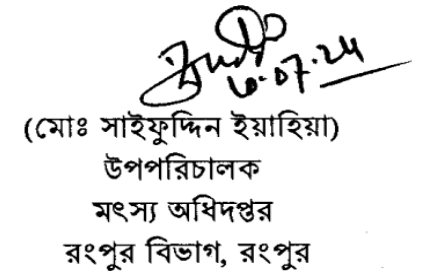 ৩.০৭.২৪
(মোঃ সাইফুদ্দিন ইয়াহিয়া)
উপপরিচালক
মৎস্য অধিদপ্তর
রংপুর বিভাগ, রংপুর